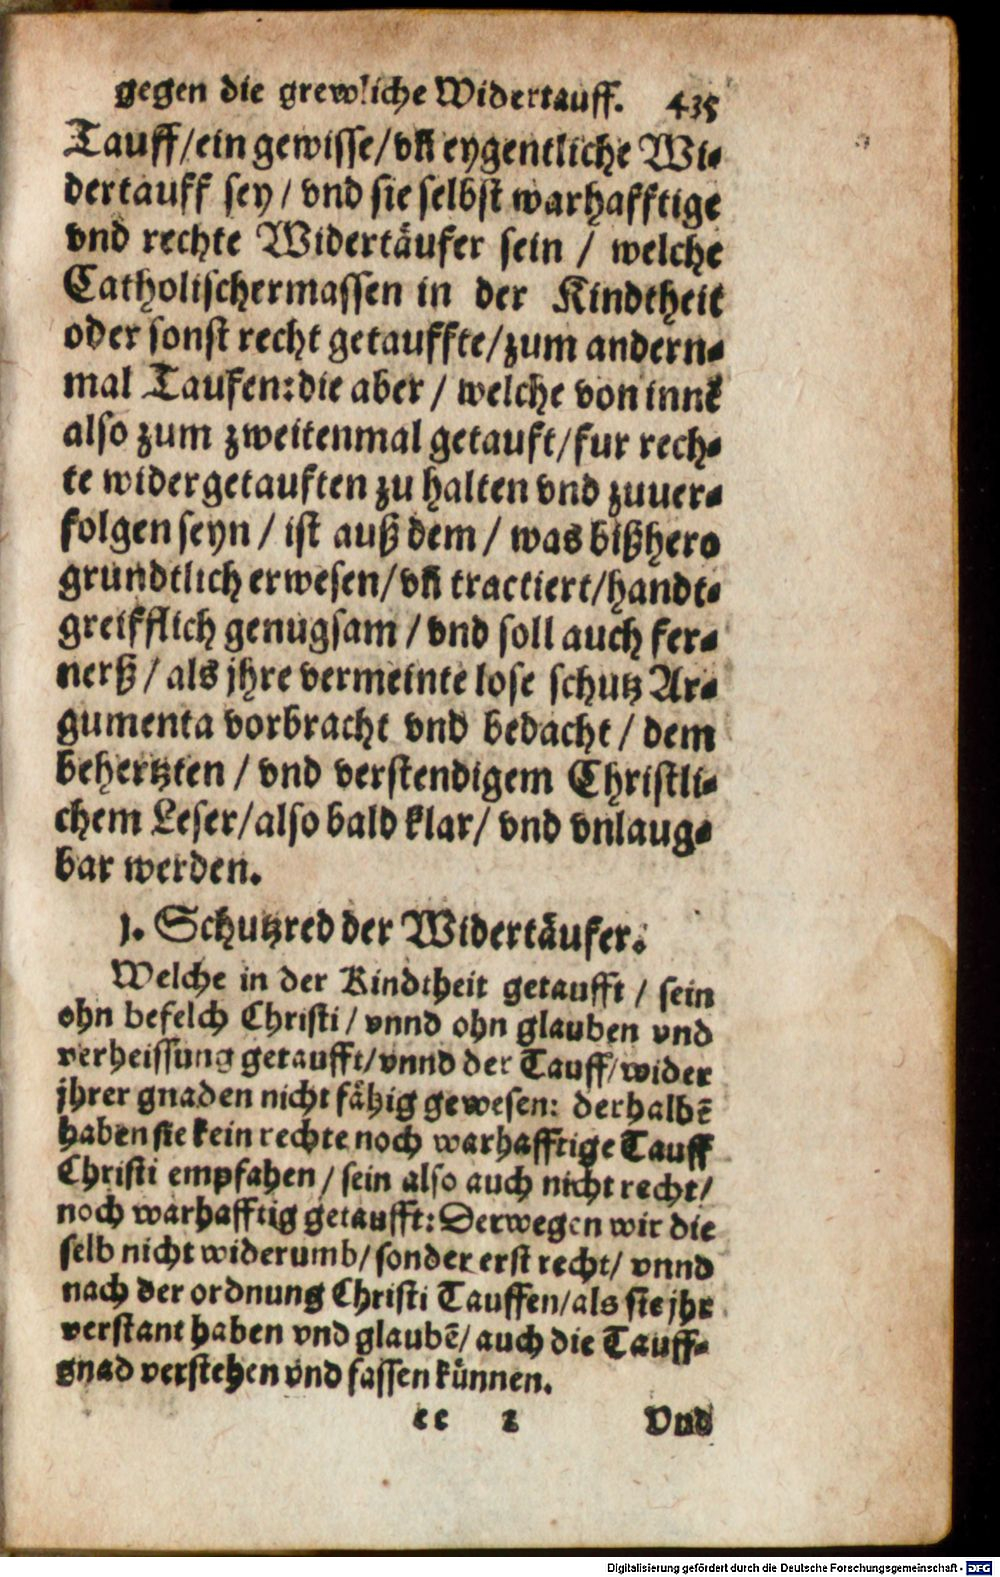 gegen die grewliche Widertauff. 435
Tauff/ein gewisse/vñ eygentliche Wi-
dertauff sey / vnd sie selbst warhafftige
vnd rechte Widertäufer sein / welche
Catholischermassen in der Kindtheit
oder sonst recht getauffte/zum andern-
mal Taufen:die aber / welche von innẽ
also zum zweitenmal getauft/fur rech-
te widergetauften zu halten vnd zuuer-
folgen seyn / ist auß dem / was bißhero
grundtlich erwesen/vñ tractiert/handt-
greifflich genugsam / vnd soll auch fer-
nerß / als jhre vermeinte lose schutz Ar-
gumenta vorbracht vnd bedacht / dem
behertzten / vnd verstendigem Christli-
chem Leser/also bald klar/ vnd vnlaug-
bar werden.
1. Schutzred der Widertäufer.
Welche in der Kindtheit getaufft / sein
ohn befelch Christi / vnnd ohn glauben vnd
verheissung getaufft/vnnd der Tauff/wider
jhrer gnaden nicht fähig gewesen: derhalbẽ
haben sie kein rechte noch warhafftige Tauff
Christi empfahen / sein also auch nicht recht/
noch warhafftig getaufft: Derwegen wir die
selb nicht widerumb/ sonder erst recht/ vnnd
nach der ordnung Christi Tauffen/als sie jhr
verstant haben vnd glaubẽ/ auch die Tauff-
gnad verstehen vnd fassen künnen.
ee 2 Vnd
Digitalisierung gefördert durch die Deutsche Forschungsgemeinschaft - DFG